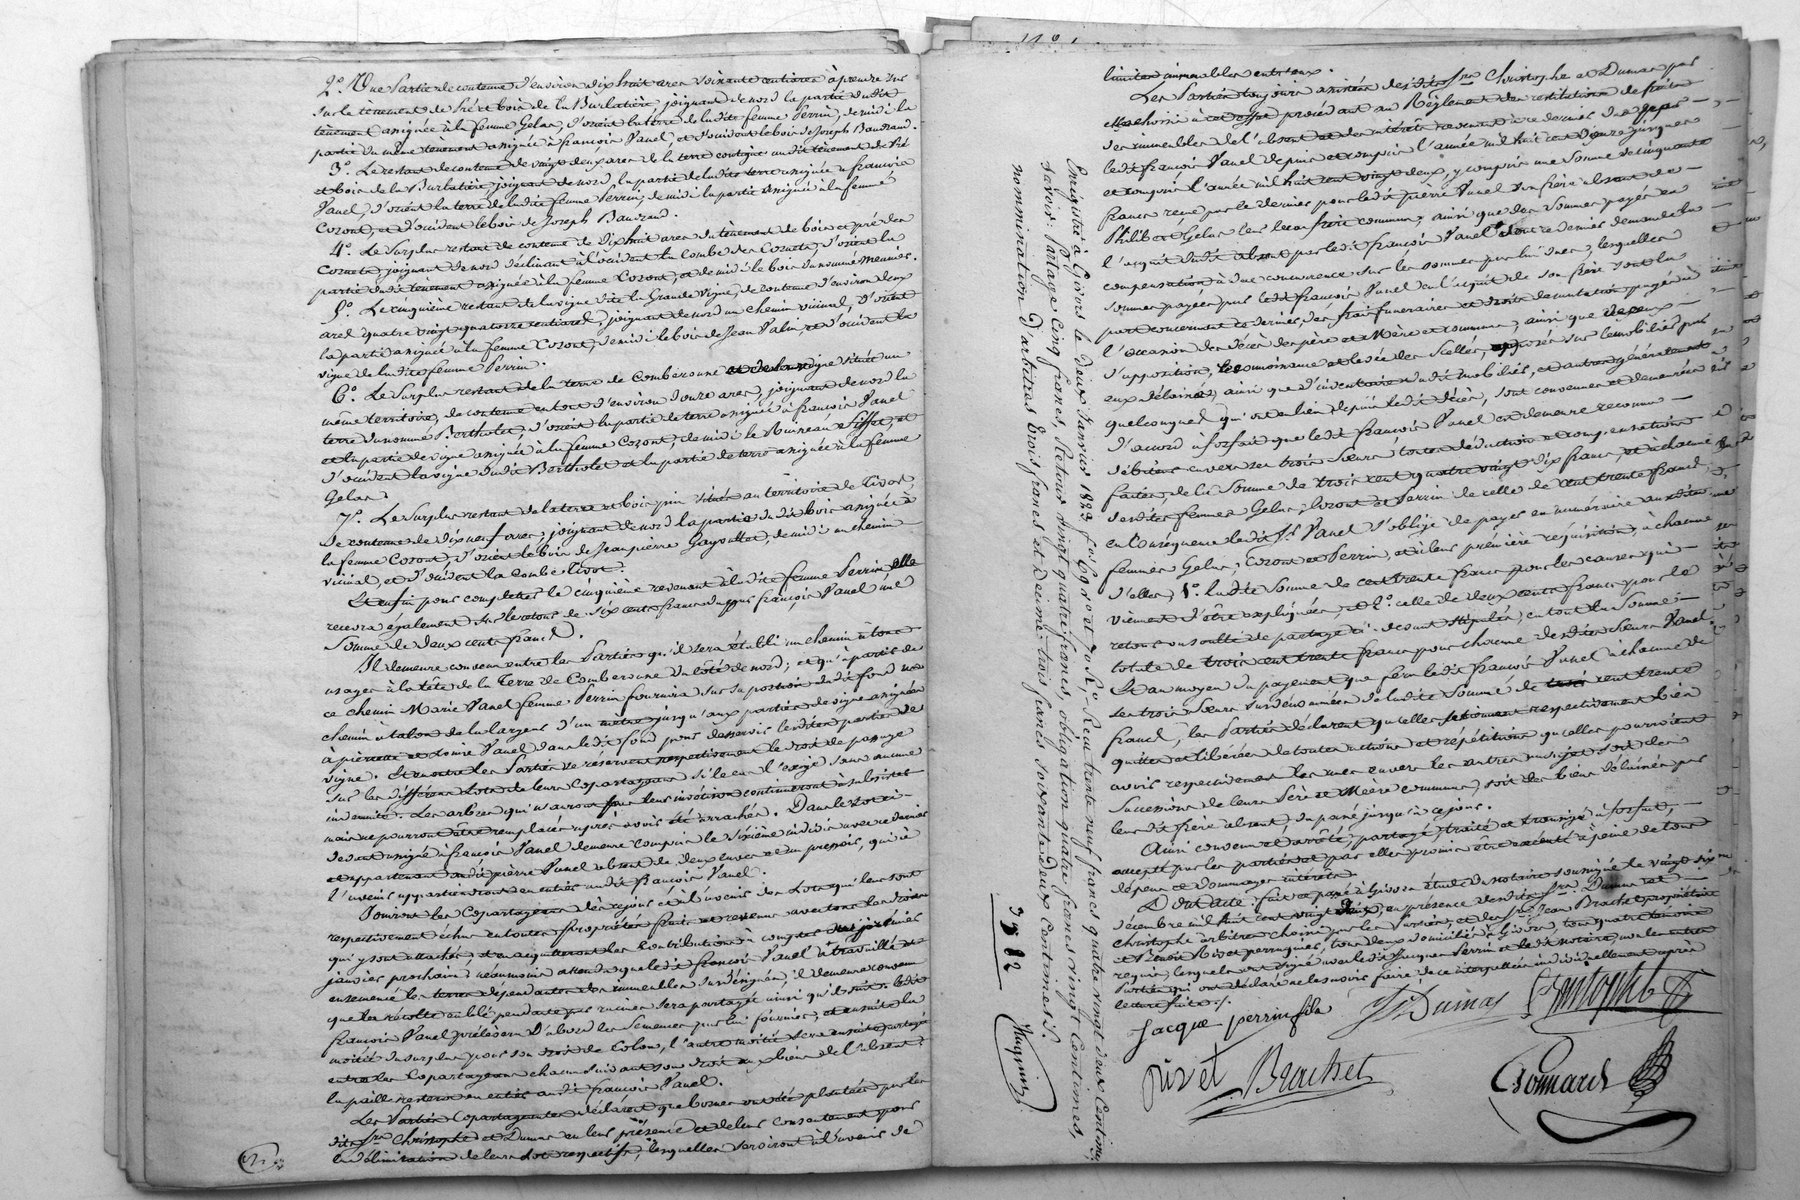 2.º Une Partie de contenue d'environ dix huit ares soixante centiares à prendre sur
sur le tènement de Pré et bois de la Burlatière, joignant de nord la partie dudit
tènement assignée à la femme Gelas, d'orient la terre de ladite femme Perrin, de midi la
partie du même tènement assignée à françois Vanel, et d'occident le bois de Joseph Baudrand.
3.º Le restant de contenue de vingt deux ares de la terre contigue audit tènement de Pré
et bois de la Burlatière, joignant de nord, la partie de ladite terre assignée à françois
Vanel, d'orient la terre de ladite femme Perrin; de midi la partie assignée à la femme
Cozont, et d'occident le bois de Joseph Baudrand.
4.º Le Surplus restant de contenue de dix huit ares du tènement de bois et pré des
Cornets, joignant de nord déclinant à l'occident la Combe des Cornets, d'orient la
partie dudit tènement assignée à la femme Cozont, et de midi le bois du nommé Meunier.
5.º Le cinquième restant de la vigne dite la Grande Vigne, de contenue d'environ deux
ares quatre vingt quatorze centiares, joignant de nord un chemin vicinal, d'orient
la partie assignée à la femme Cozont, de midi le bois de Jean Valin et d'occident la
vigne de ladite femme Perrin.
6.º Le Surplus restant de la terre de Comberonne et de la vigne située au
même territoire, de contenue en tout d'environ douze ares, joignant de nord la
terre du nommé Bertholet, d'orient la partie de terre assignée à françois Vanel
et la partie de vigne assignée à la femme Cozont, de midi le Ruisseau Sifflet, et
d'occident la vigne dudit Bertholet et la partie de terre assignée à la femme
Gelas.
7.º Le Surplus restant de la terre et bois pin situés au territoire de Tivot,
de contenue de dix neuf ares; joignant de nord la partie dudit bois assignée à
la femme Cozont, d'orient le bois de Jean pierre Gayouttet, de midi un chemin
vicinal, et d'occident la combe Tivot.
Et enfin pour completter le cinquième revenant à ladite femme Perrin elle
recevra également sur le retour de six cents francs dus par françois Vanel une
Somme de deux cents francs.
Il demeure convenu entre les Parties qu'il sera établi un chemin à tous
usages à la tête de la Terre de Comberonne du côté de nord; et qu'à partir de
ce chemin Marie Vanel femme Perrin fournira sur sa portion dudit fond un
chemin à talon de la largeur d'un mètre jusqu'aux parties de vigne assignées
à pierrette et Louise Vanel dans ledit fond pour desservir lesdites parties de
vigne. Et en outre les Parties se réservent respectivement le droit de passage
sur les différens Lots de leurs Copartageans si le cas l'exige sans aucune
indemnité. Les arbres qui s'auront par leurs invétison continueront à subsister
mais ne pourront être remplacés après avoir été arrachés. Dans le Lot ci-
dessus assigné à françois Vanel demeure compris le sixième indivis avec ce dernier
et appartenant audit pierre Vanel absent de deux cuves et un pressoir, qui à
l'avenir appartiendront en entier audit françois Vanel.
Jouiront les Copartageans dès ce jour et à l'avenir des Lots qui leur sont
respectivement échus en toutes Propriétés fruits et revenus avec tous les droits
qui y sont attachés; et en acquitteront les Contributions à compter du premier
janvier prochain; néanmoins attendu que ledit françois Vanel à travaillé et
ensemencé les terres dépendantes des immeubles sus désignés, il demeure convenu
que la récolte en blé pendante par racines sera partagée ainsi qu'il suit: ledit
françois Vanel prélèvera d'abord les Semences par lui fournies, et ensuite la
moitié du surplus pour son droit de Colon, l'autre moitié sera ensuite partagée
entre les Copartageans chacun suivant son droit aux biens de l'absent:
la paille restera en entier audit françois Vanel.
Les Parties Copartageantes déclarent que bornes ont été plantées par les
dits Srs Christophe et Dumas en leur présence et de leur consentement pour
la délimitation de leurs Lots respectifs, lesquelles serviront à l'avenir de
limites immuables entr'eux.
Les Parties toujours assistées desdits Srs Christophe et Dumas par
elles choisis à cet effet procédant au Règlement des restitutions de fruits
des immeubles de l'absent et des intérêts revenant à ce dernier dus par
ledit françois Vanel depuis et compris l'année mil huit cent douze jusques
et compris l'année mil huit cent vingt deux, y compris une Somme de cinquante
francs reçue par le dernier pour ledit pierre Vanel son frère absent de
Philibert Gelas leur beau frère commun; ainsi que des Sommes payées en
l'acquit dudit absent par ledit françois Vanel dont ce dernier demande la
compensation à due concurrence sur les sommes par lui dues; lesquelles
sommes payées par ledit françois Vanel en l'acquit de son frère sont la
part concernant ce dernier des frais funéraires et droits de mutation payés à
l'occasion des décès des père et Mère et communs, ainsi que de ceux
d'apposition, reconnoissance et levée des Scellés, apposés sur les mobiliers par
eux délaissés, ainsi que d'inventaire dudit mobilier, et autres généralement
quelconques qui ont eu lieu depuis ledit décès, sont convenus et demeurés
d'accord à forfait que ledit françois Vanel est demeuré reconnu
débiteur envers ses trois Sœurs toutes déductions et compensations
faites de la Somme de trois cent quatre vingt dix francs, et à chacune
desdites femmes Gelas, Cozont et Perrin de celle de cent trente francs;
en Conséquence ledit Sr Vanel s'oblige de payer en numéraire auxdites
femmes Gelas, Cozont et Perrin, et à leur première réquisition, à chacune
d'elles, 1.º ladite somme de cent trente francs pour les causes qui
viennent d'être expliquées, et 2.º celle de deux cents francs pour le
retour ou soulte de partage ci-devant stipulée, en tout la Somme
totale de trois cent trente francs pour chacune desdites sœurs Vanel.
Et au moyen du payement que fera ledit françois Vanel à chacune de
ses trois Sœurs susdénommées de ladite Somme de trois cent trente
francs, les Parties déclarent qu'elles se tiennent respectivement bien
quittes et libérées de toutes actions et répétitions qu'elles pourroient
avoir respectivement les unes envers les autres au sujet soit des
Successions de leurs Père et Mère communs, soit des biens délaissés par
leur dit frère absent, du passé jusqu'à ce jour.
Ainsi convenu et arrêté, partagé, traité et transigé à forfait,
accepté par les parties et par elles promis être exécuté à peine de tous
dépens et dommages intérêts.
Dont acte: fait et passé à Givors étude du notaire soussigné le vingt six
décembre mil huit cent vingt deux, en présence desdits Srs Dumas et
Christophe arbitres choisis par les Parties, et des Srs Jean Brachet propriétaire
et Benoit Rivet perruquier, tous deux domiciliés à Givors, tous quatre témoins
requis; lesquels ont signé avec ledit Jacques Perrin et ledit notaire, non les autres
Parties qui ont déclaré ne le savoir faire, de ce interpellées individuellement après
lecture faite./.
jacque perrin fils
J. Dumas
Christophe
rivet
Brachet
Bonnard
Enregistré à Givors le deux Janvier 1823 fol. 69 vº et 70 Rº, Reçu trente neuf francs quatre vingt deux Centimes,
savoir: Partage Cinq francs, Retour vingt quatre francs, obligation quatre francs vingt Centimes,
nomination d'arbitres trois francs et décime trois francs soixante deux Centimes./.
39 82